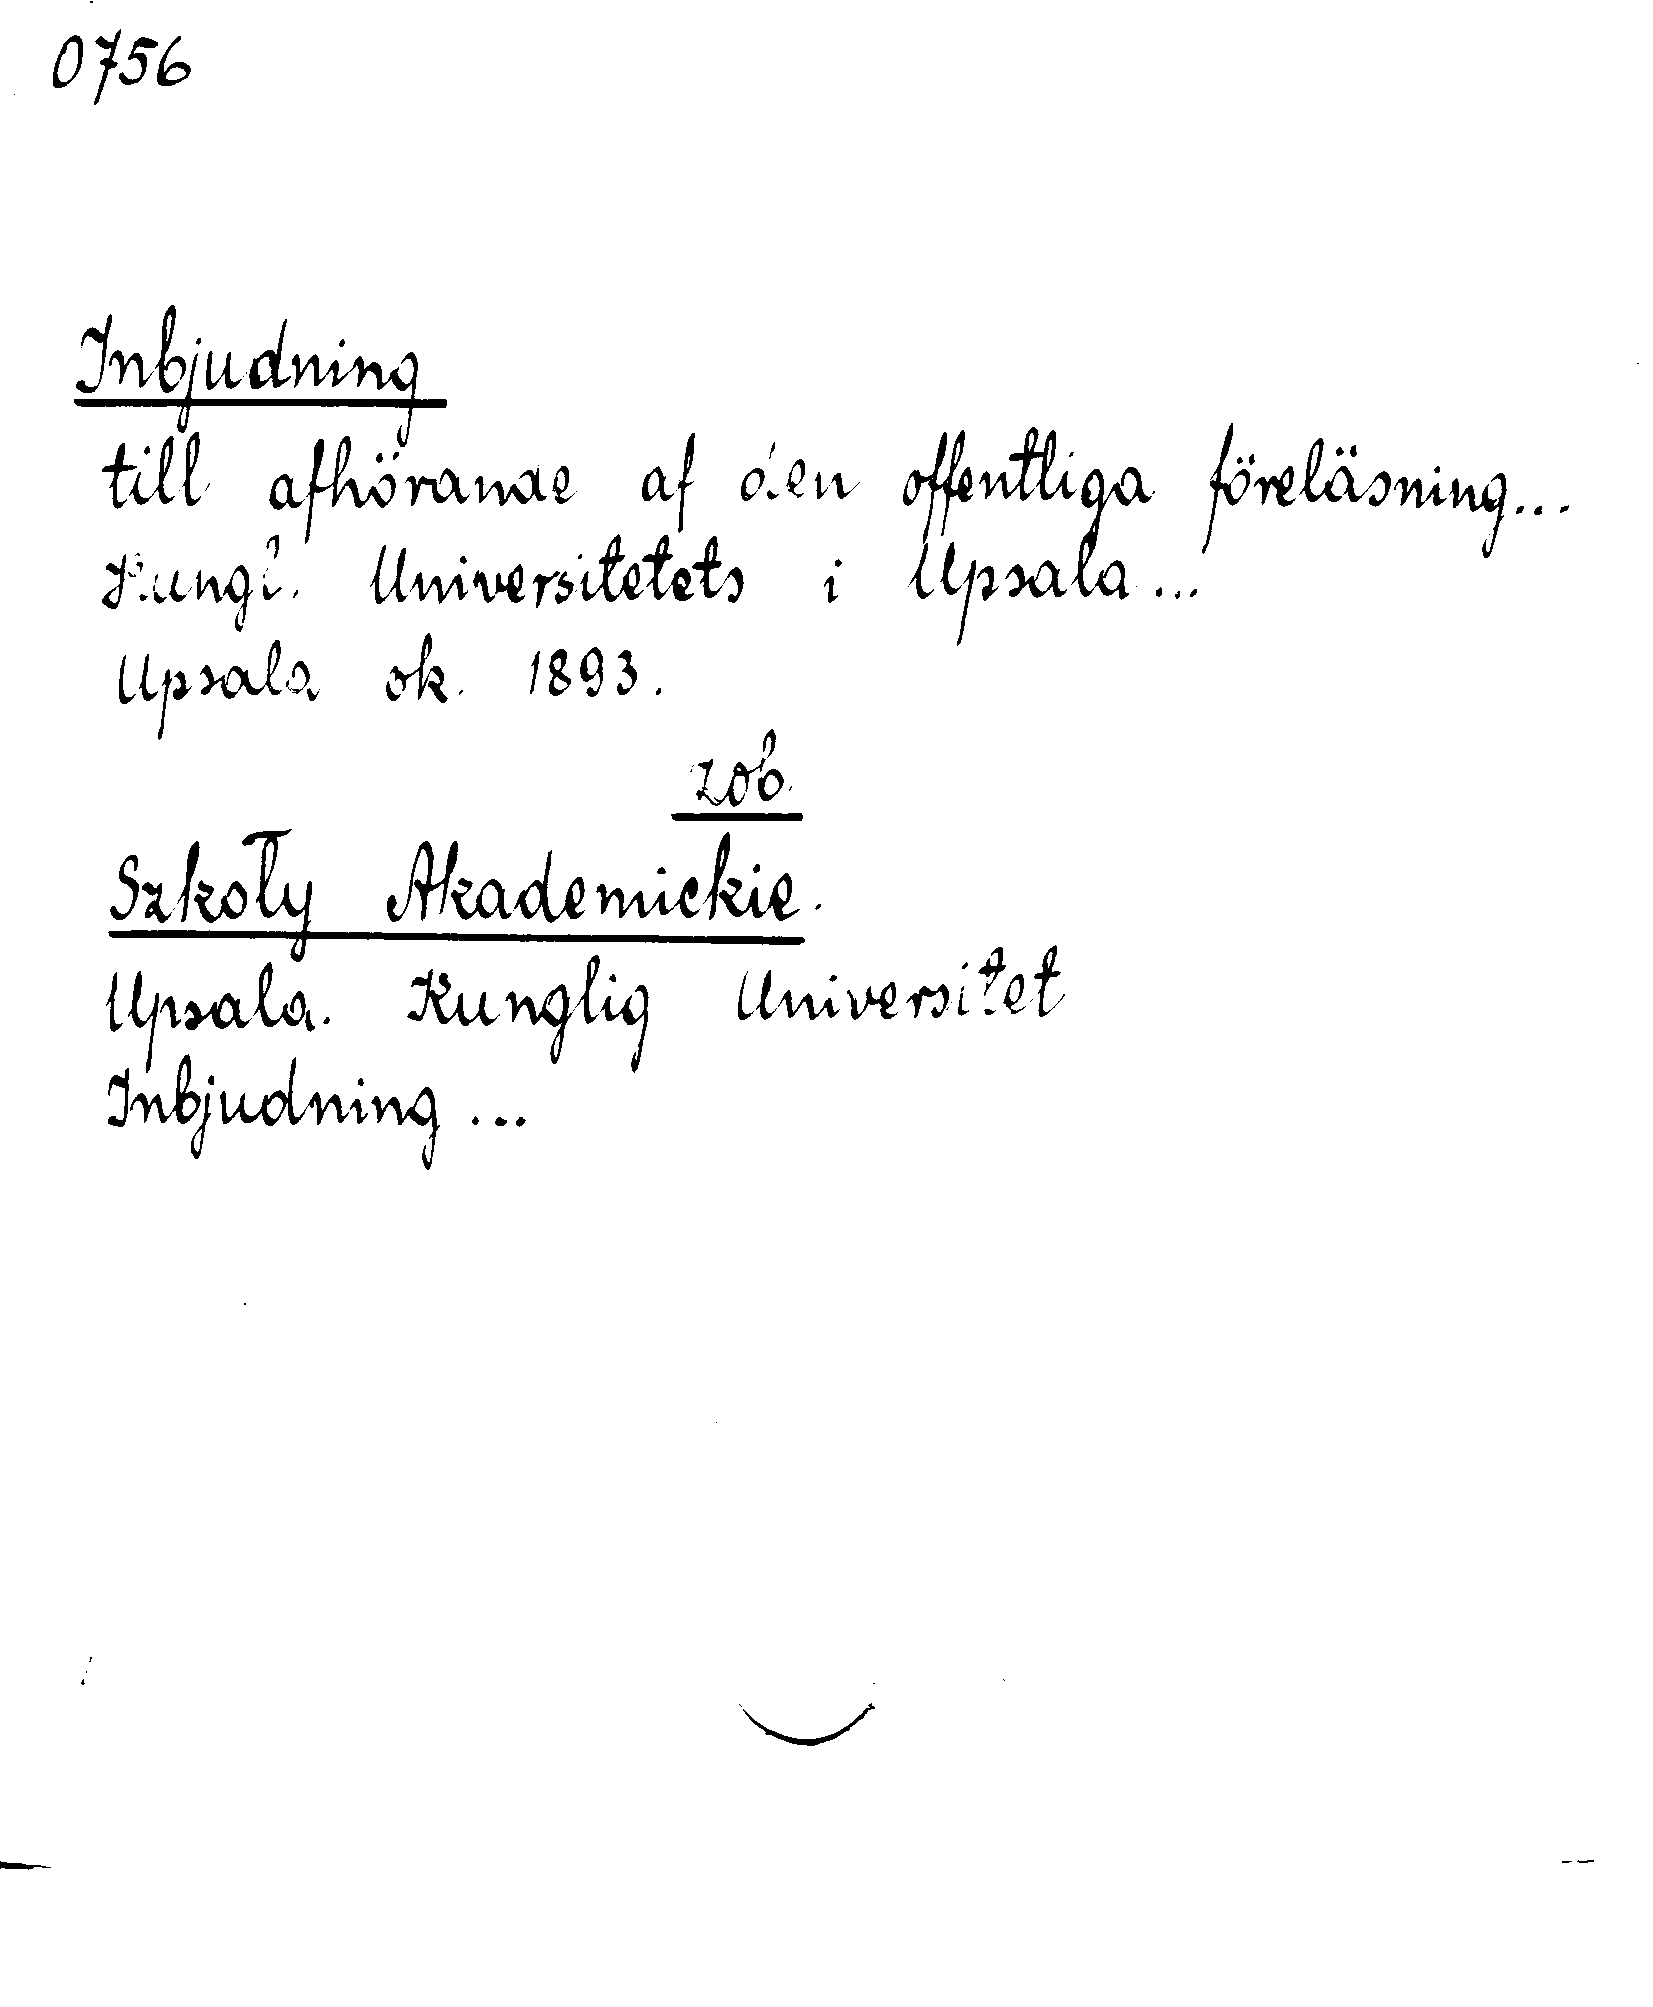 0756
Inbjudning
till afhörande af den offentliga föreläsning...
Kungl. Universitetets i Upsala...
Upsala ok. 1893.
zob.
Szkoły Akademickie.
Upsala. Kunglig Universitet
Inbjudning...